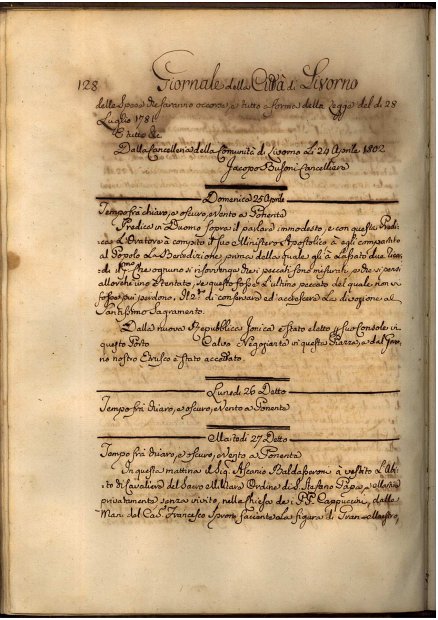 128 Giornale della Città di Livorno
delle Spese che saranno occorse, e tutto a forma della Legge del dì 28
Luglio 1781
E tutto &c.
Dalla Cancelleria della Comunità di Livorno Li 24 Aprile 1802
Jacopo Busoni Cancelliere
Domenica 25 Aprile
Tempo frà chiaro, e oscuro, e Vento a Ponente
Predica in Duomo sopra il parlare immodesto, e con questa Predi-
ca L'Oratore à compito il suo Ministero Apostolico à egli compartito
al Popolo La Benedizione, prima della quale gli à Lasciato due
di p.mo che ognuno si che i peccati sono misurati, e che si pensi
allorchè uno è tentato, se questo fosse L'ultimo peccato del quale non vi
fosse più perdono, Il 2.o di conservare ed accrescere La divozione al
Santissimo Sagramento.
Dalla nuova Repubblica Jonica è stato eletto p suo Console in
questo Porto Calvo Negoziante in questa Piazza, e dal Gover-
no nostro Etrusco è stato accettato.
Lunedì 26 Detto
Tempo frà chiaro, e oscuro, e Vento a Ponente
Martedì 27 Detto
Tempo frà chiaro, e oscuro, e Vento a Ponente
In questa mattina il Sig. Ascanio Baldasseroni à vestito L'Abi-
to di Cavaliere del Sacro e Militare Ordine di S. Stefano Papa, e Martire
privatamente senza invito, nella Chiesa de i PP. Cappuccini, dalle
Mani del Cav. Francesco Sproni facente La figura di Gran Maestro,